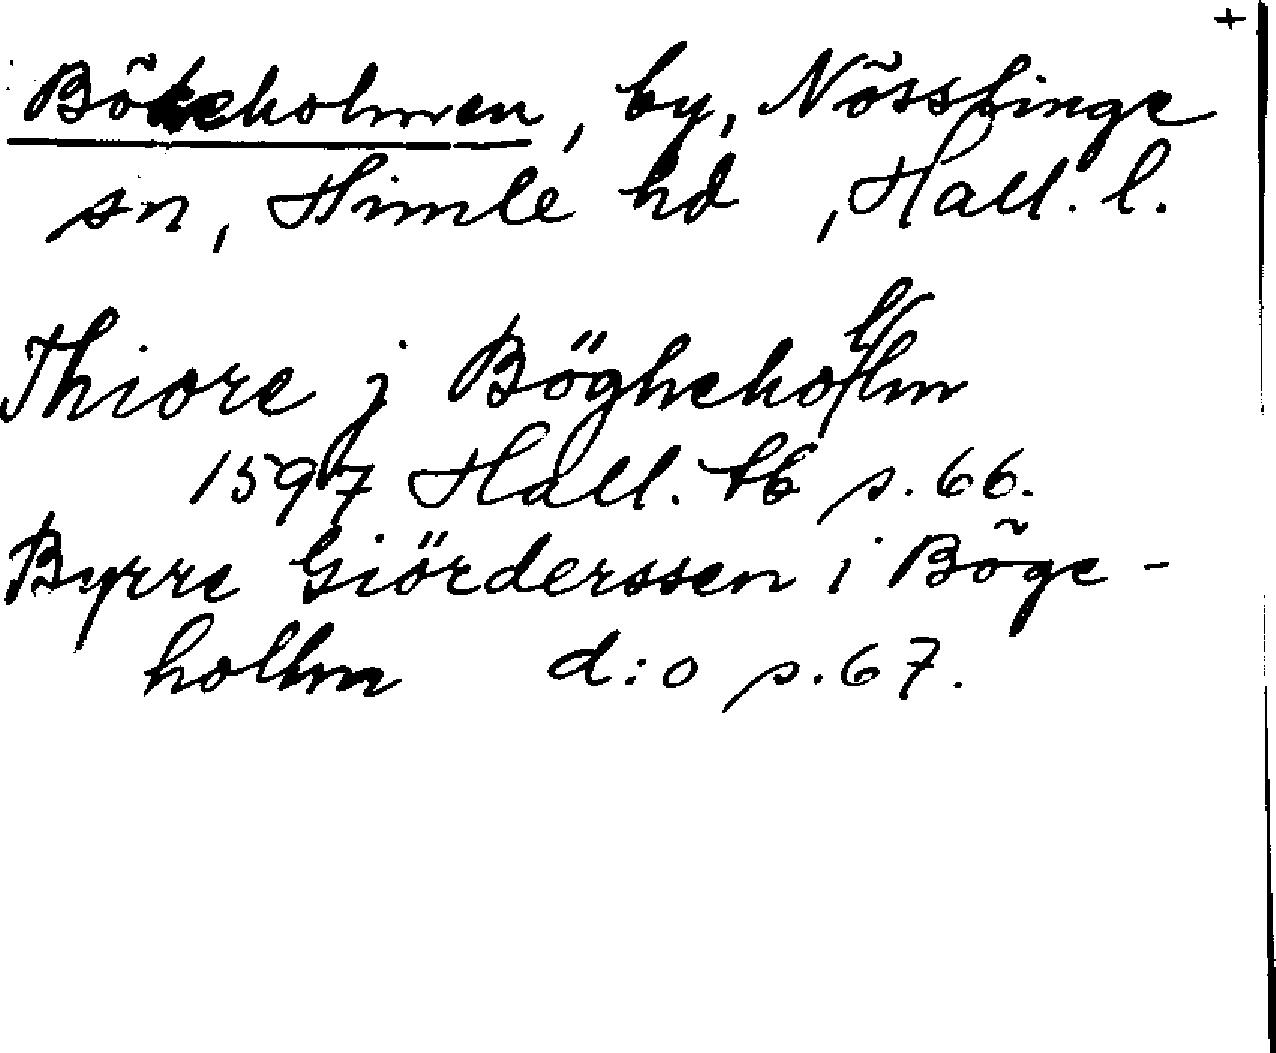 +
Bökeholmen, by, Nösslinge
sn, Himle hd, Hall. l.
Thiore j Böghehollm
1597 Hall. tb s. 66.
Byrre Giörderssen i Böge-
hollm d:o s. 67.